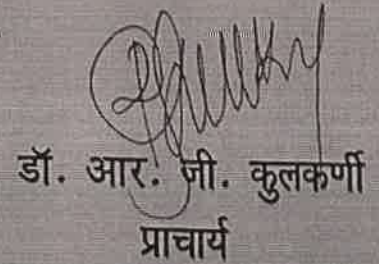 डॉ. आर. जी. कुलकर्णी
प्राचार्य